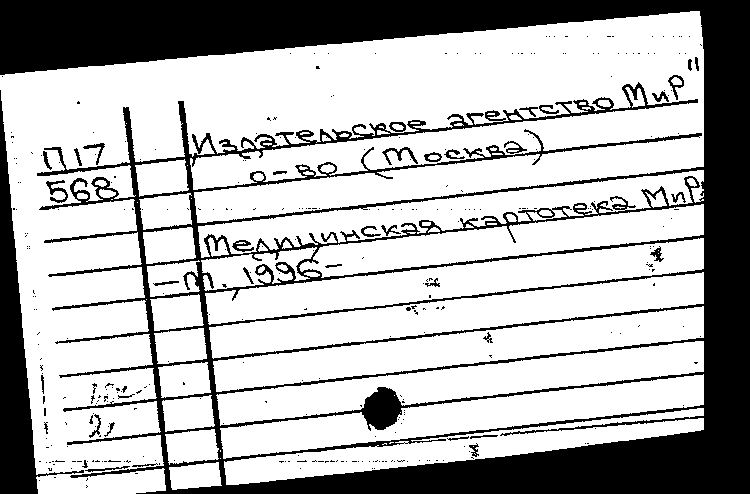 П17 „Издательское агентство МиР"
568 о-во (Москва)
Медицинская картотека МиР:
— М., 1996-